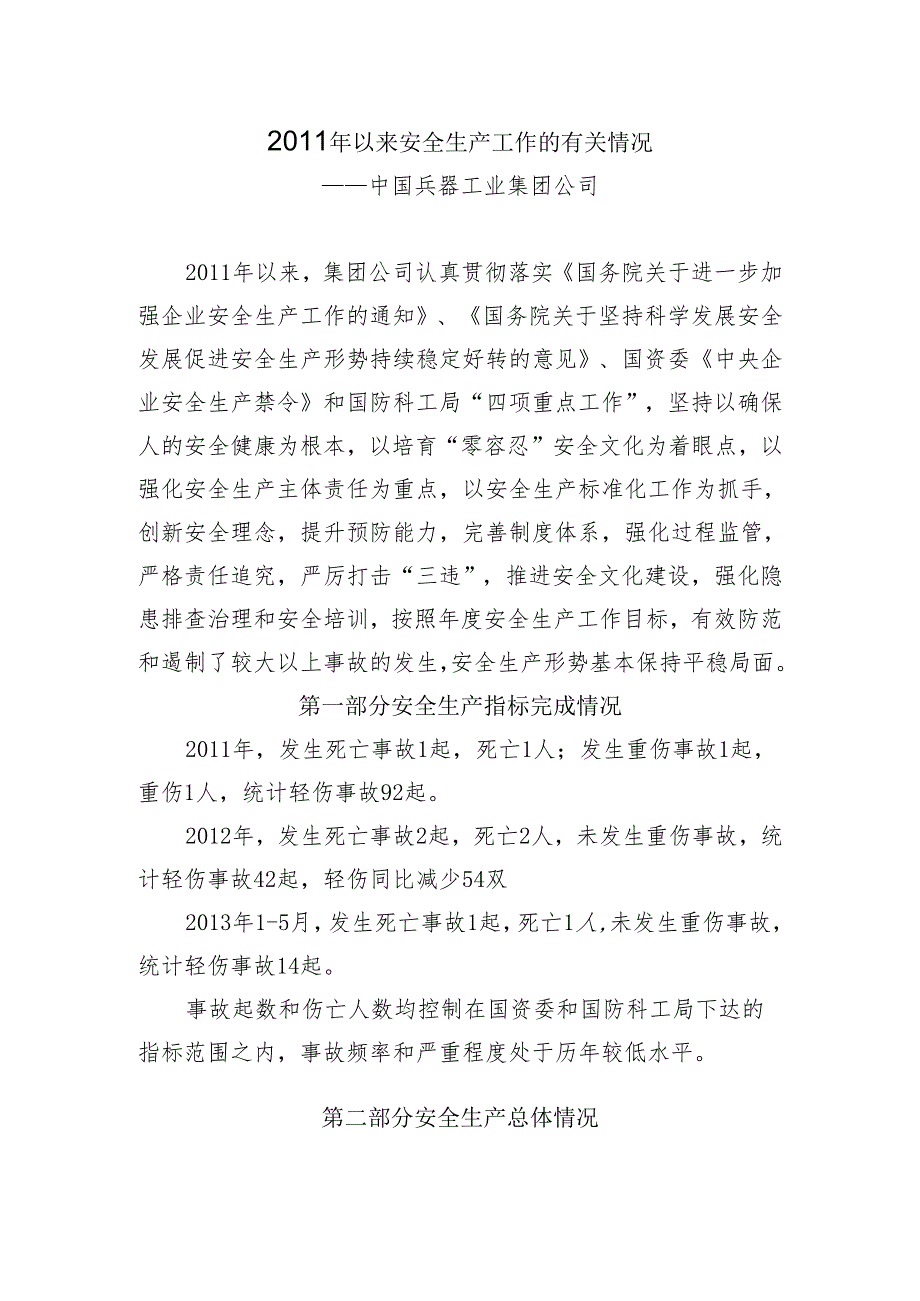 2011年以来安全生产工作的有关情况
——中国兵器工业集团公司
2011年以来，集团公司认真贯彻落实《国务院关于进一步加
强企业安全生产工作的通知》、《国务院关于坚持科学发展安全
发展促进安全生产形势持续稳定好转的意见》、国资委《中央企
业安全生产禁令》和国防科工局“四项重点工作”，坚持以确保
人的安全健康为根本，以培育“零容忍”安全文化为着眼点，以
强化安全生产主体责任为重点，以安全生产标准化工作为抓手，
创新安全理念，提升预防能力，完善制度体系，强化过程监管，
严格责任追究，严厉打击“三违”，推进安全文化建设，强化隐
患排查治理和安全培训，按照年度安全生产工作目标，有效防范
和遏制了较大以上事故的发生，安全生产形势基本保持平稳局面。
第一部分安全生产指标完成情况
2011年，发生死亡事故1起，死亡1人；发生重伤事故1起，
重伤1人，统计轻伤事故92起。
2012年，发生死亡事故2起，死亡2人，未发生重伤事故，统
计轻伤事故42起，轻伤同比减少54双
2013年1-5月，发生死亡事故1起，死亡1人，未发生重伤事故，
统计轻伤事故14起。
事故起数和伤亡人数均控制在国资委和国防科工局下达的
指标范围之内，事故频率和严重程度处于历年较低水平。
第二部分安全生产总体情况